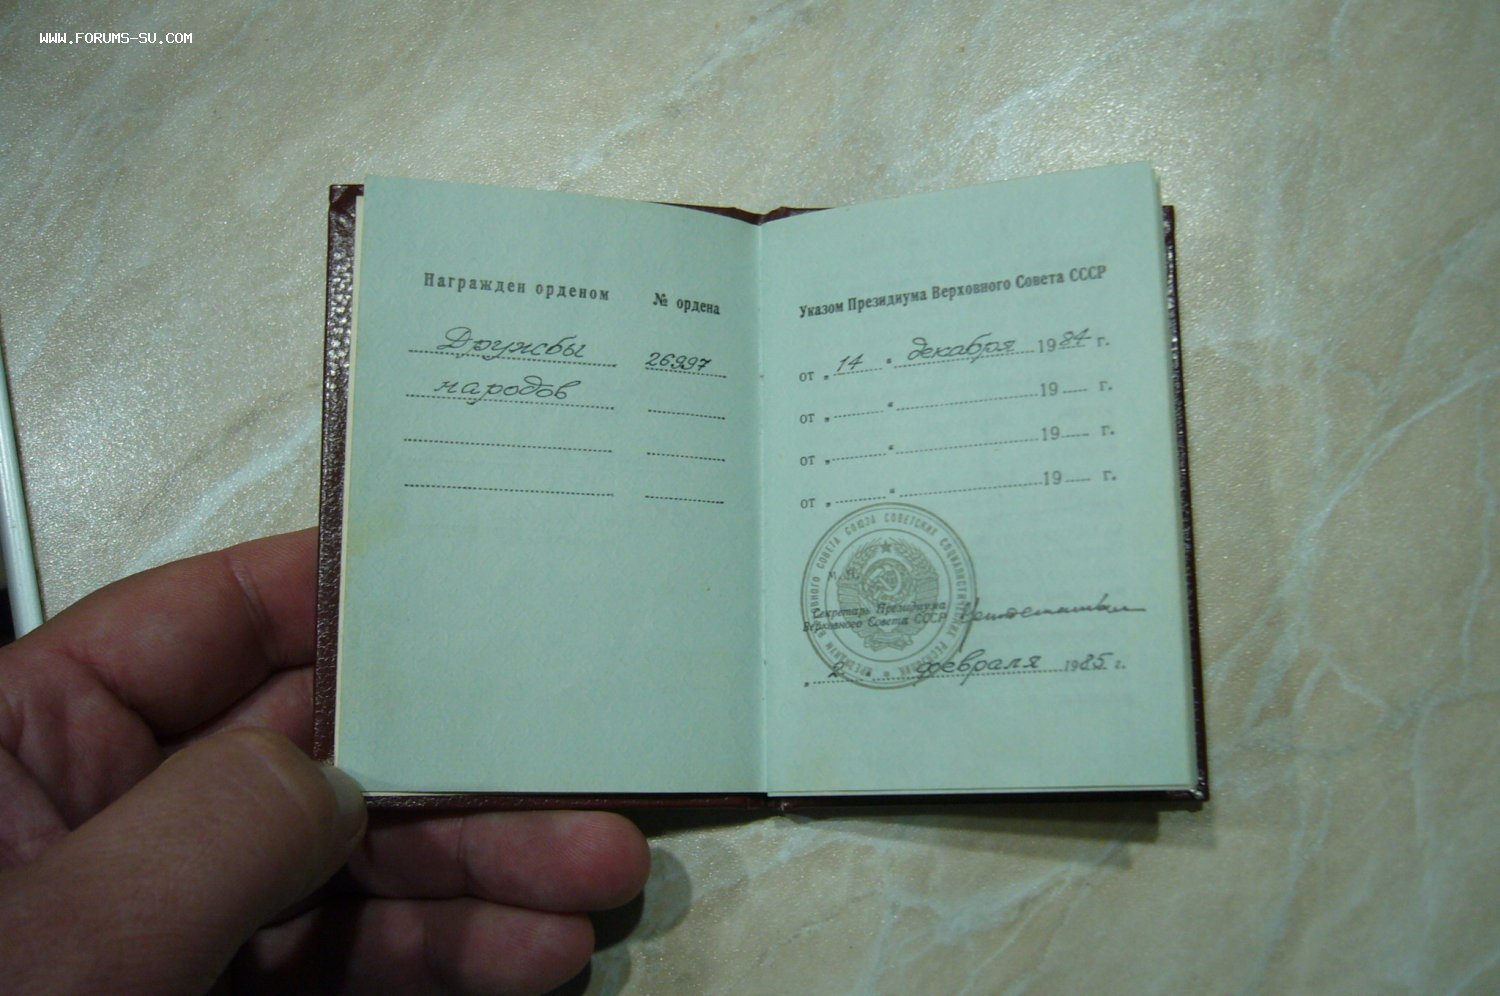 WWW.FORUMS-SU.COM
Награжден орденом № ордена
Дружбы 26997
народов
Указом Президиума Верховного Совета СССР
от „ 14 “ декабря 1984 г.
от „ “ 19 г.
от „ “ 19 г.
от „ “ 19 г.
ПРЕЗИДИУМ ВЕРХОВНОГО СОВЕТА СОЮЗА СОВЕТСКИХ СОЦИАЛИСТИЧЕСКИХ РЕСПУБЛИК
М. П.
Секретарь Президиума
Верховного Совета СССР
„ 2 “ февраля 1985 г.